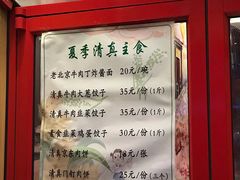 夏季清真主食
老北京牛肉丁炸酱面 20元/碗
清真牛肉大葱饺子 35元/份(1斤)
清真牛肉韭菜饺子 35元/份(1斤)
素食韭菜鸡蛋饺子 30元/份(1斤)
清真京东肉饼 18元/张
清真门钉肉饼 25元/份(三个)